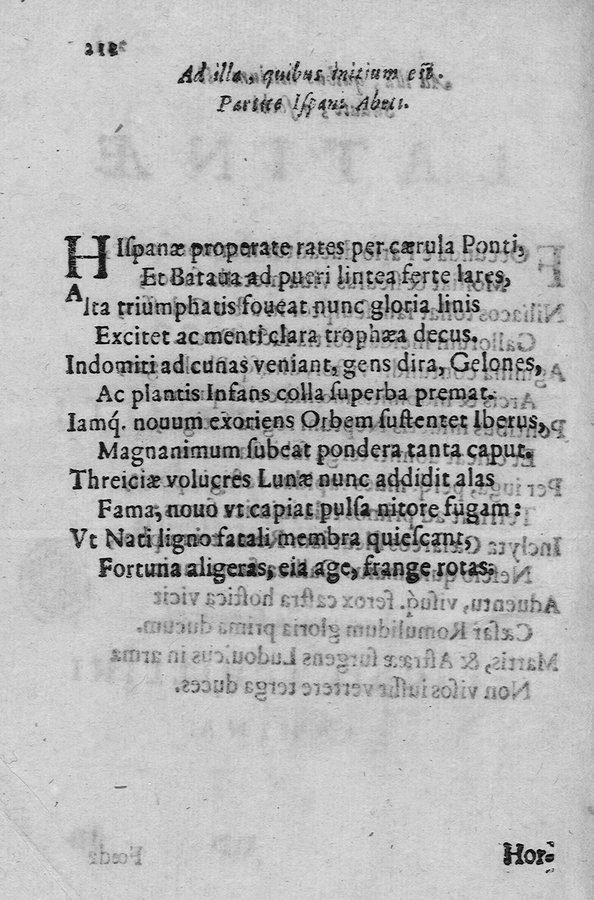 212
Ad illa, quibus initium est.
Partite Iſpani Abeti.
HIſpanæ properate rates per cærula Ponti,
Et Bataua ad pueri lintea ferte lares,
Alta triumphatis foueat nunc gloria linis
Excitet ac menti clara trophæa decus.
Indomiti ad cunas veniant, gens dira, Gelones,
Ac plantis Infans colla ſuperba premat.
Iamq́. nouum exoriens Orbem ſuſtentet Iberus,
Magnanimum ſubeat pondera tanta caput.
Threiciæ volucres Lunæ nunc addidit alas
Fama, nouo vt capiat pulſa nitore fugam:
Vt Nati ligno fatali membra quieſcant,
Fortuna aligeras, eia age, frange rotas.
Hor-